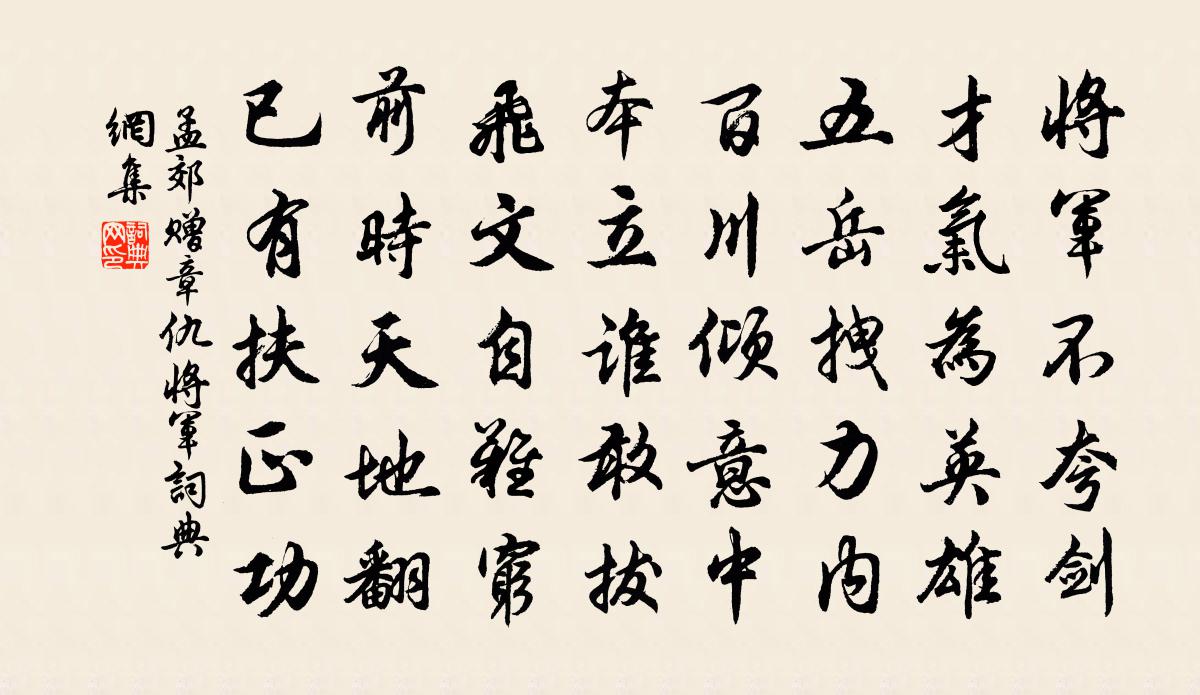 將軍不夸劍
才氣為英雄
五岳拽力內
百川傾意中
本立誰敢拔
飛文自難窮
前時天地翻
已有扶正功
孟郊赠章仇將軍詞典
網集
詞典
网印